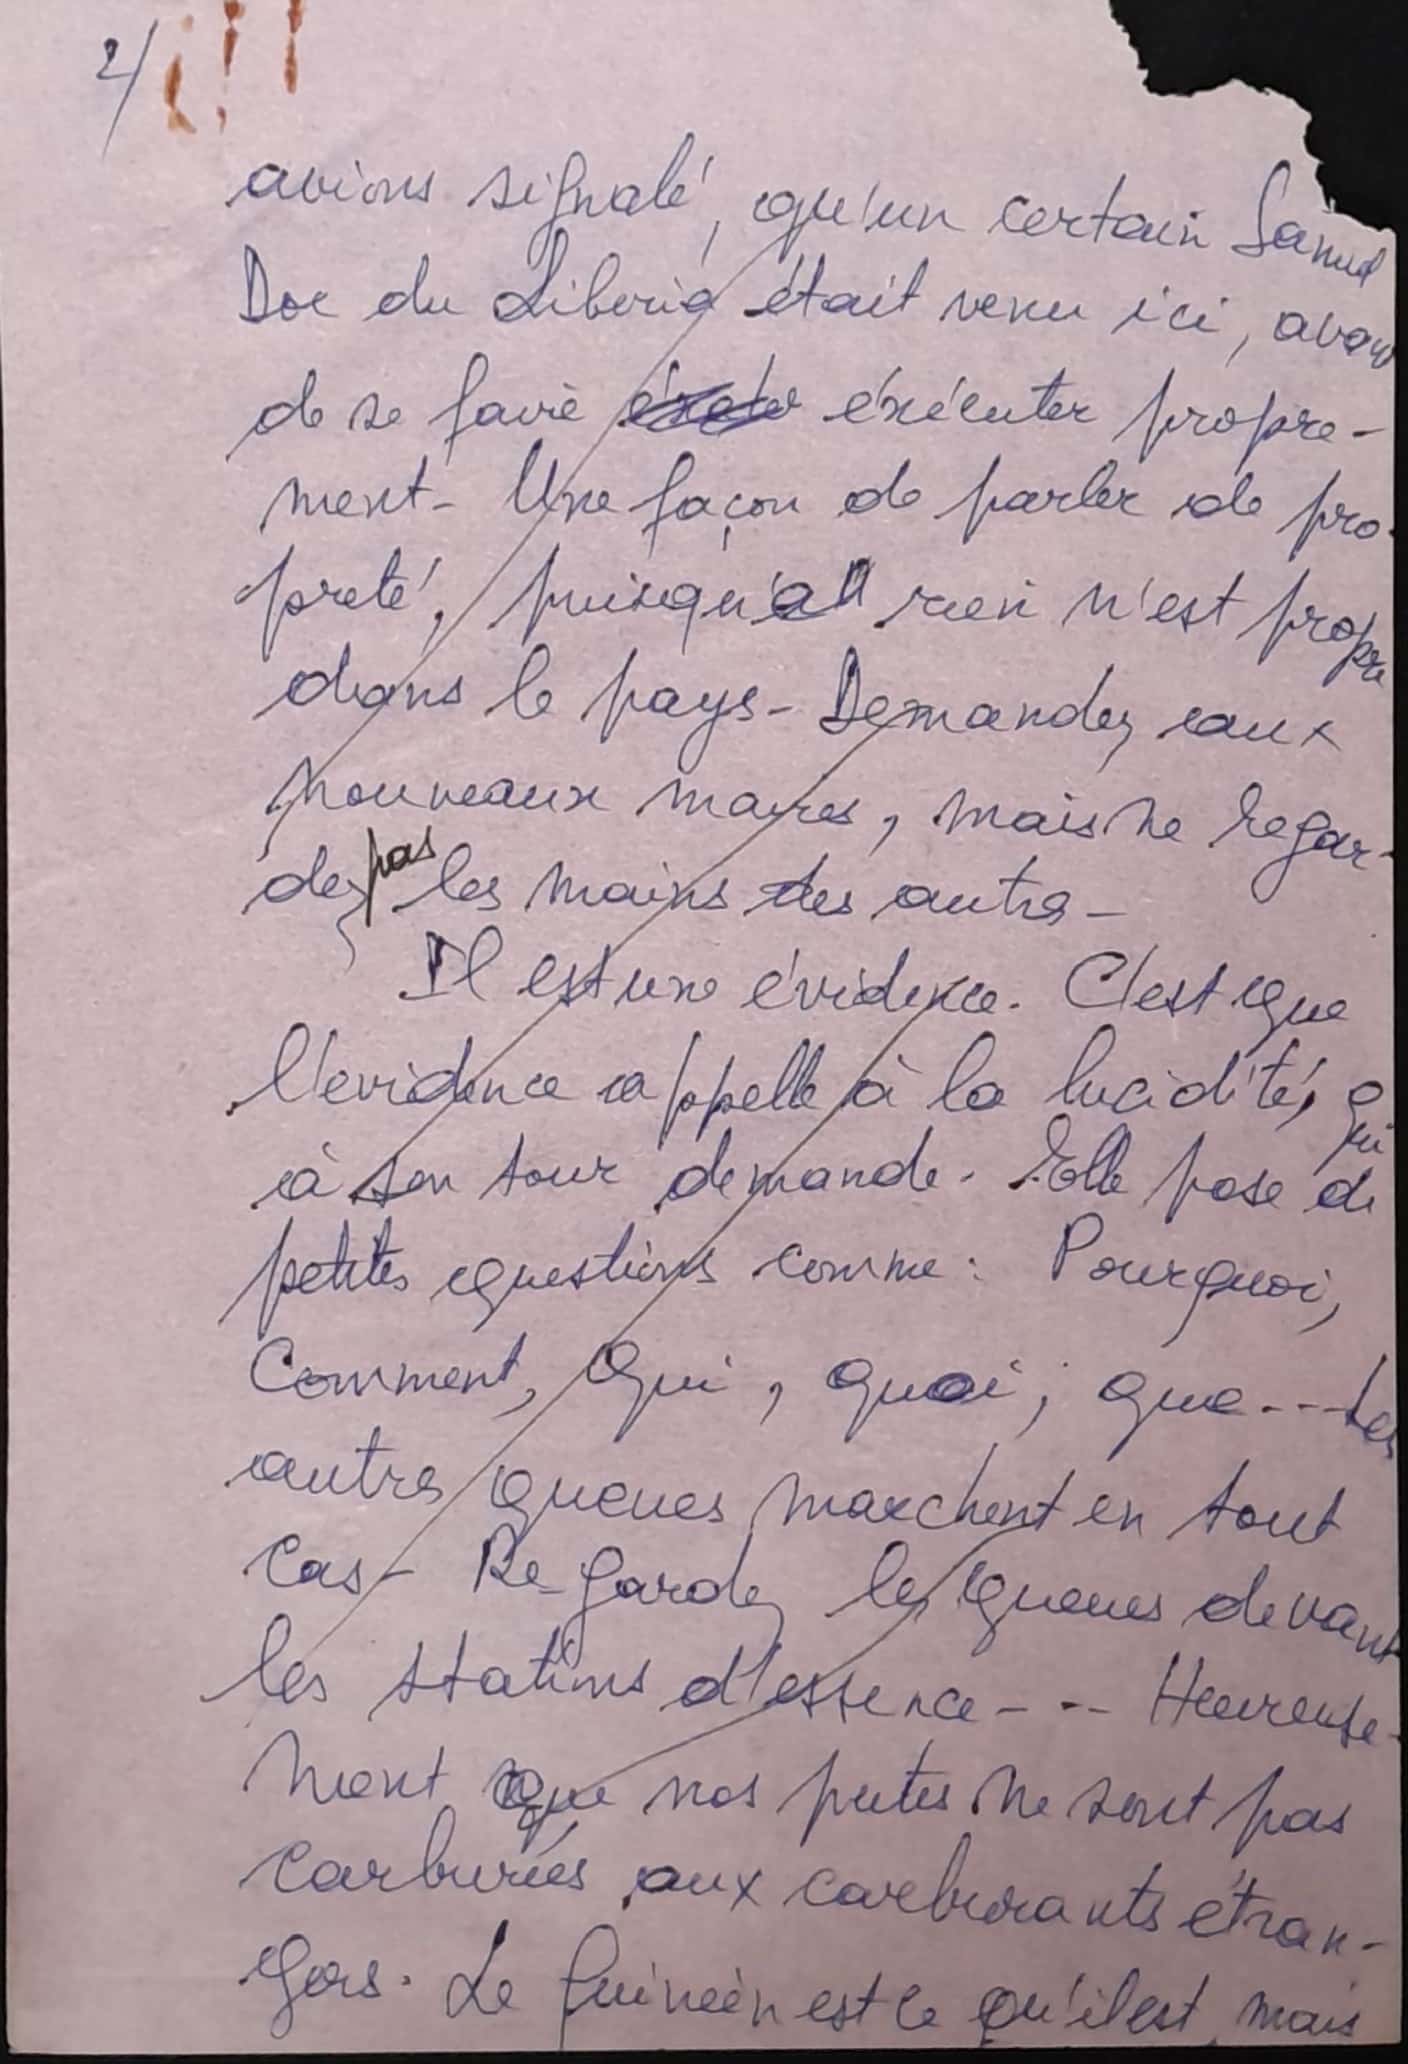 2/
avions signalé, qu'un certain Samuel
Doe du Liberia était venu ici, avant
de se faire éxécuter propre-
ment - Une façon de parler de pro-
preté, puisqu'au rien n'est propre
dans le pays - Demandez aux
nouveaux maires, mais ne regar-
dez pas les mains des autres -
Il est une évidence. C'est que
l'evidence appelle à la lucidité, qui
à son tour demande. Elle pose de
petites questions comme : Pourquoi,
Comment, Qui, quoi, que --- Les
autres queues marchent en tout
cas - Regardez les queues devant
les stations d'essence - - - Heureuse-
ment que nos putes ne sont pas
carburées aux carburants étran-
gers. Le Guinéen est ce qu'il est, mais